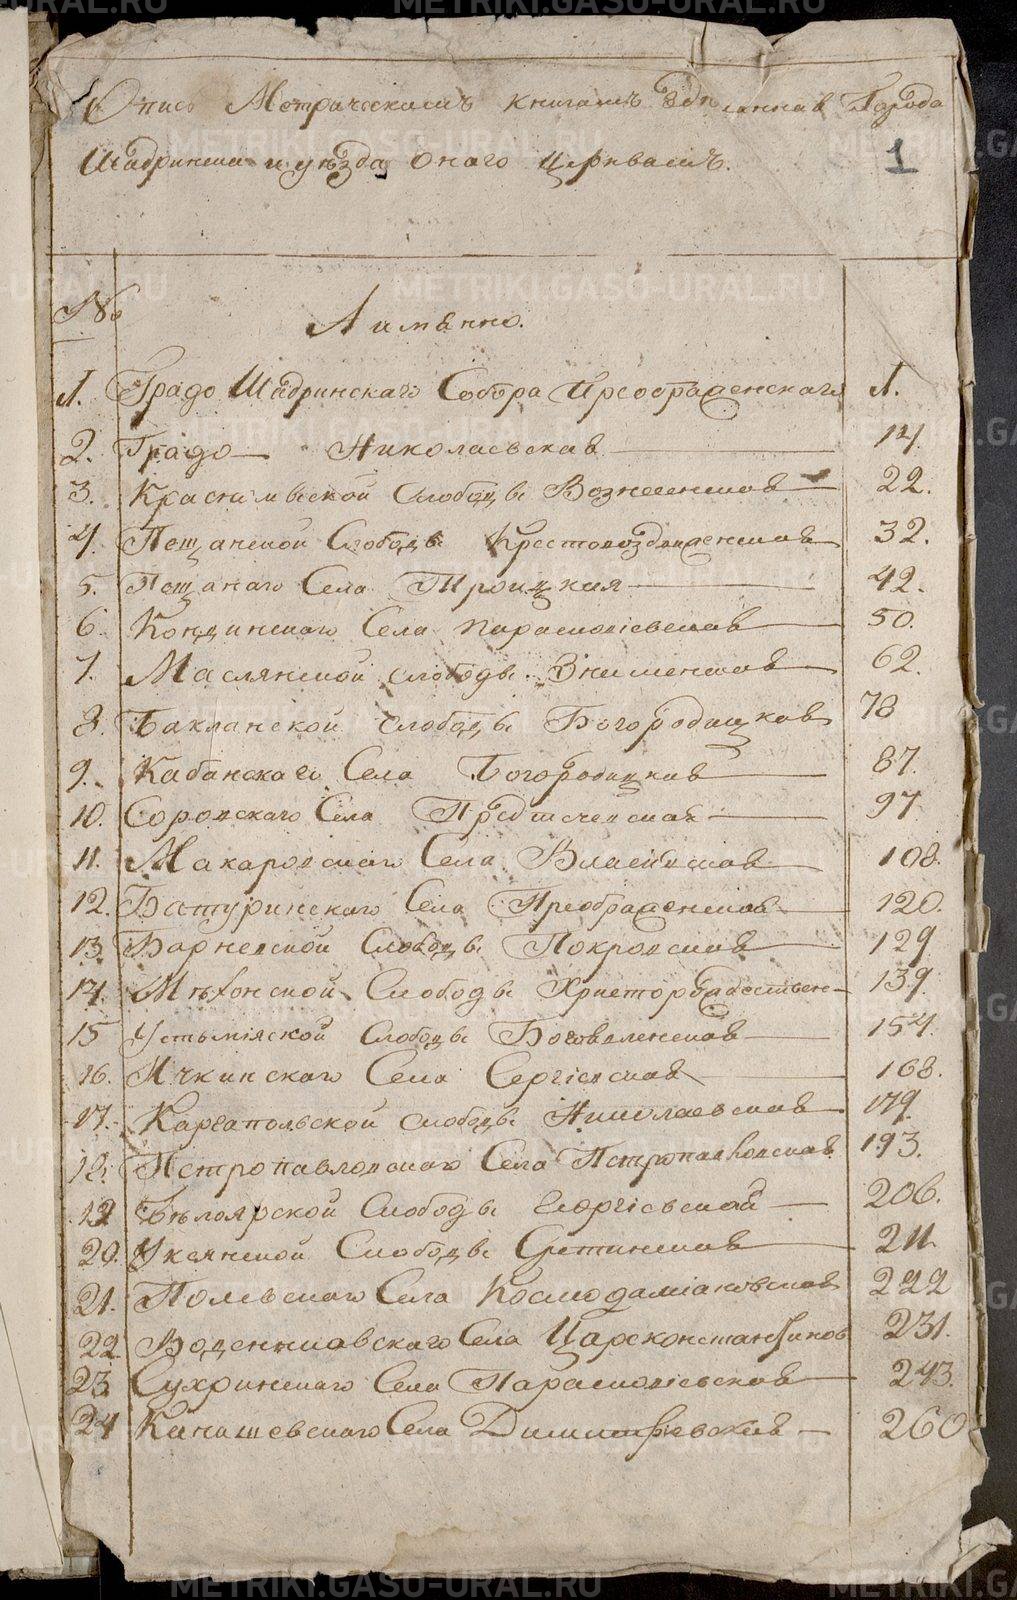 Опись Метрическимъ книгамъ зделанная Города
Шадринска и уѣзда онаго церквамъ.
1
№ Аимянно.
1. Градо Шадринскаго Собора Преображенскаго 1.
2. Градо Николаевская 14.
3. Слободы Вознесенская 22.
4. Песчанской Слободы Крестовоздвиженская 32.
5. Песчанаго Села Троицкая 42.
6. Кондинскаго Села Парасковіевская 50.
7. Маслянской слободы Знаменская 62.
8. Бакланской слободы Богородицкая 78
9. Кабанскаго Села Богородицкая 87.
10. Соровскаго Села Предтеченская 97
11. Макаровскаго Села Власіевская 108.
12. Батуринскаго Села Преображенская 120.
13. Барневской Слободы Покровская 129
14. Мѣхонской Слободы Христорождественс 139.
15 Устьміяской слободы Богоявленская 154.
16. Ичкинскаго Села Сергіевская 168.
17. Каргапольской слободы Николаевская 179.
18. Петропавловскаго Села Петропавловская 193.
19 Бѣлоярской Слободы Георгіевской 206.
20. Уксянской Слободы Сретинская 211
21. Полевскаго Села Космодаміановская 222
22. Воденниковскаго Села Цареконстантинов 231.
23. Сухринскаго Села Парасковіевская 243.
24 Канашевскаго Села Димитріевская 260
METRIKI.GASO-URAL.RU